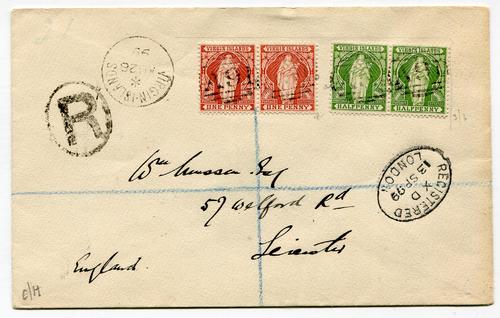 VIRGIN ISLANDS VIRGIN ISLANDS VIRGIN ISLANDS VIRGIN ISLANDS
ONE PENNY ONE PENNY HALFPENNY HALFPENNY
VIRGIN-ISLANDS
26
99
R
REGISTERED
A D
13 SP 99
LONDON
Wm Esq
57 Welford Rd
Leicester
England.
C/H